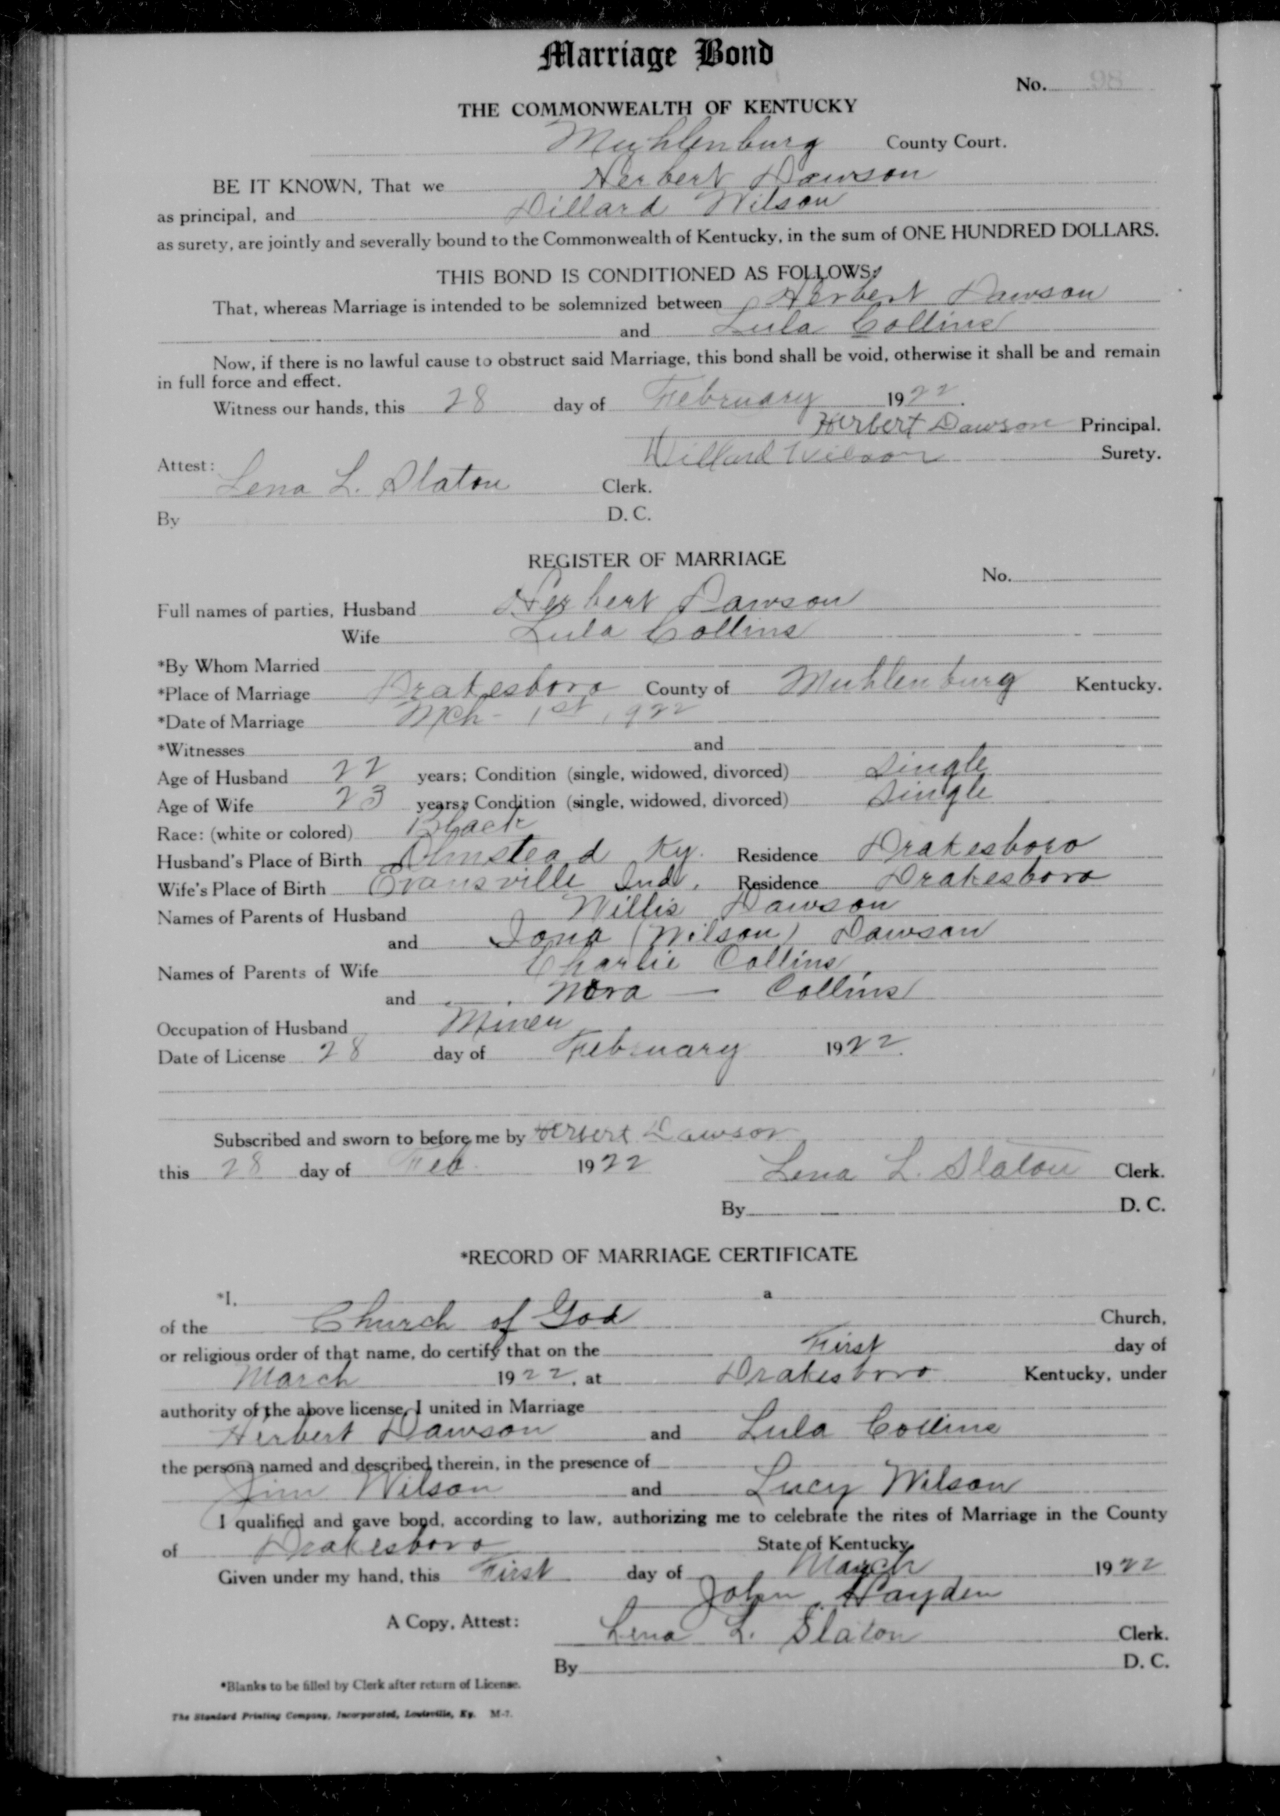 Marriage Bond
No. 98
THE COMMONWEALTH OF KENTUCKY
Muhlenburg County Court.
BE IT KNOWN, That we Herbert Dawson
as principal, and Dillard Wilson
as surety, are jointly and severally bound to the Commonwealth of Kentucky, in the sum of ONE HUNDRED DOLLARS.
THIS BOND IS CONDITIONED AS FOLLOWS:
That, whereas Marriage is intended to be solemnized between Herbert Dawson
and Lula Collins
Now, if there is no lawful cause to obstruct said Marriage, this bond shall be void, otherwise it shall be and remain
in full force and effect.
Witness our hands, this 28 day of February 1922.
Herbert Dawson Principal.
Willard Wilson Surety.
Attest:
Lena L. Slaton Clerk.
By D. C.
REGISTER OF MARRIAGE
No.
Full names of parties, Husband Herbert Dawson
Wife Lula Collins
*By Whom Married
*Place of Marriage Drakesboro County of Muhlenburg Kentucky.
*Date of Marriage Mch - 1st, 1922
*Witnesses and
Age of Husband 22 years; Condition (single, widowed, divorced) Single
Age of Wife 23 years; Condition (single, widowed, divorced) Single
Race: (white or colored) Black
Husband's Place of Birth Olmstead Ky. Residence Drakesboro
Wife's Place of Birth Evansville Ind. Residence Drakesboro
Names of Parents of Husband Willis Dawson
and Iona (Wilson) Dawson
Names of Parents of Wife Charlie Collins
and Nora — Collins
Occupation of Husband Miner
Date of License 28 day of February 1922.
Subscribed and sworn to before me by Herbert Dawson
this 28 day of Feb. 1922 Lena L. Slaton Clerk.
By D. C.
*RECORD OF MARRIAGE CERTIFICATE
*I, a
of the Church of God Church,
or religious order of that name, do certify that on the First day of
March 1922, at Drakesboro Kentucky, under
authority of the above license, I united in Marriage
Herbert Dawson and Lula Collins
the persons named and described therein, in the presence of
Jim Wilson and Lucy Wilson
I qualified and gave bond, according to law, authorizing me to celebrate the rites of Marriage in the County
of Drakesboro State of Kentucky.
Given under my hand, this First day of March 1922
John Hayden
A Copy, Attest: Lena L. Slaton Clerk.
By D. C.
*Blanks to be filled by Clerk after return of License.
The Standard Printing Company, Incorporated, Louisville, Ky. M-7.